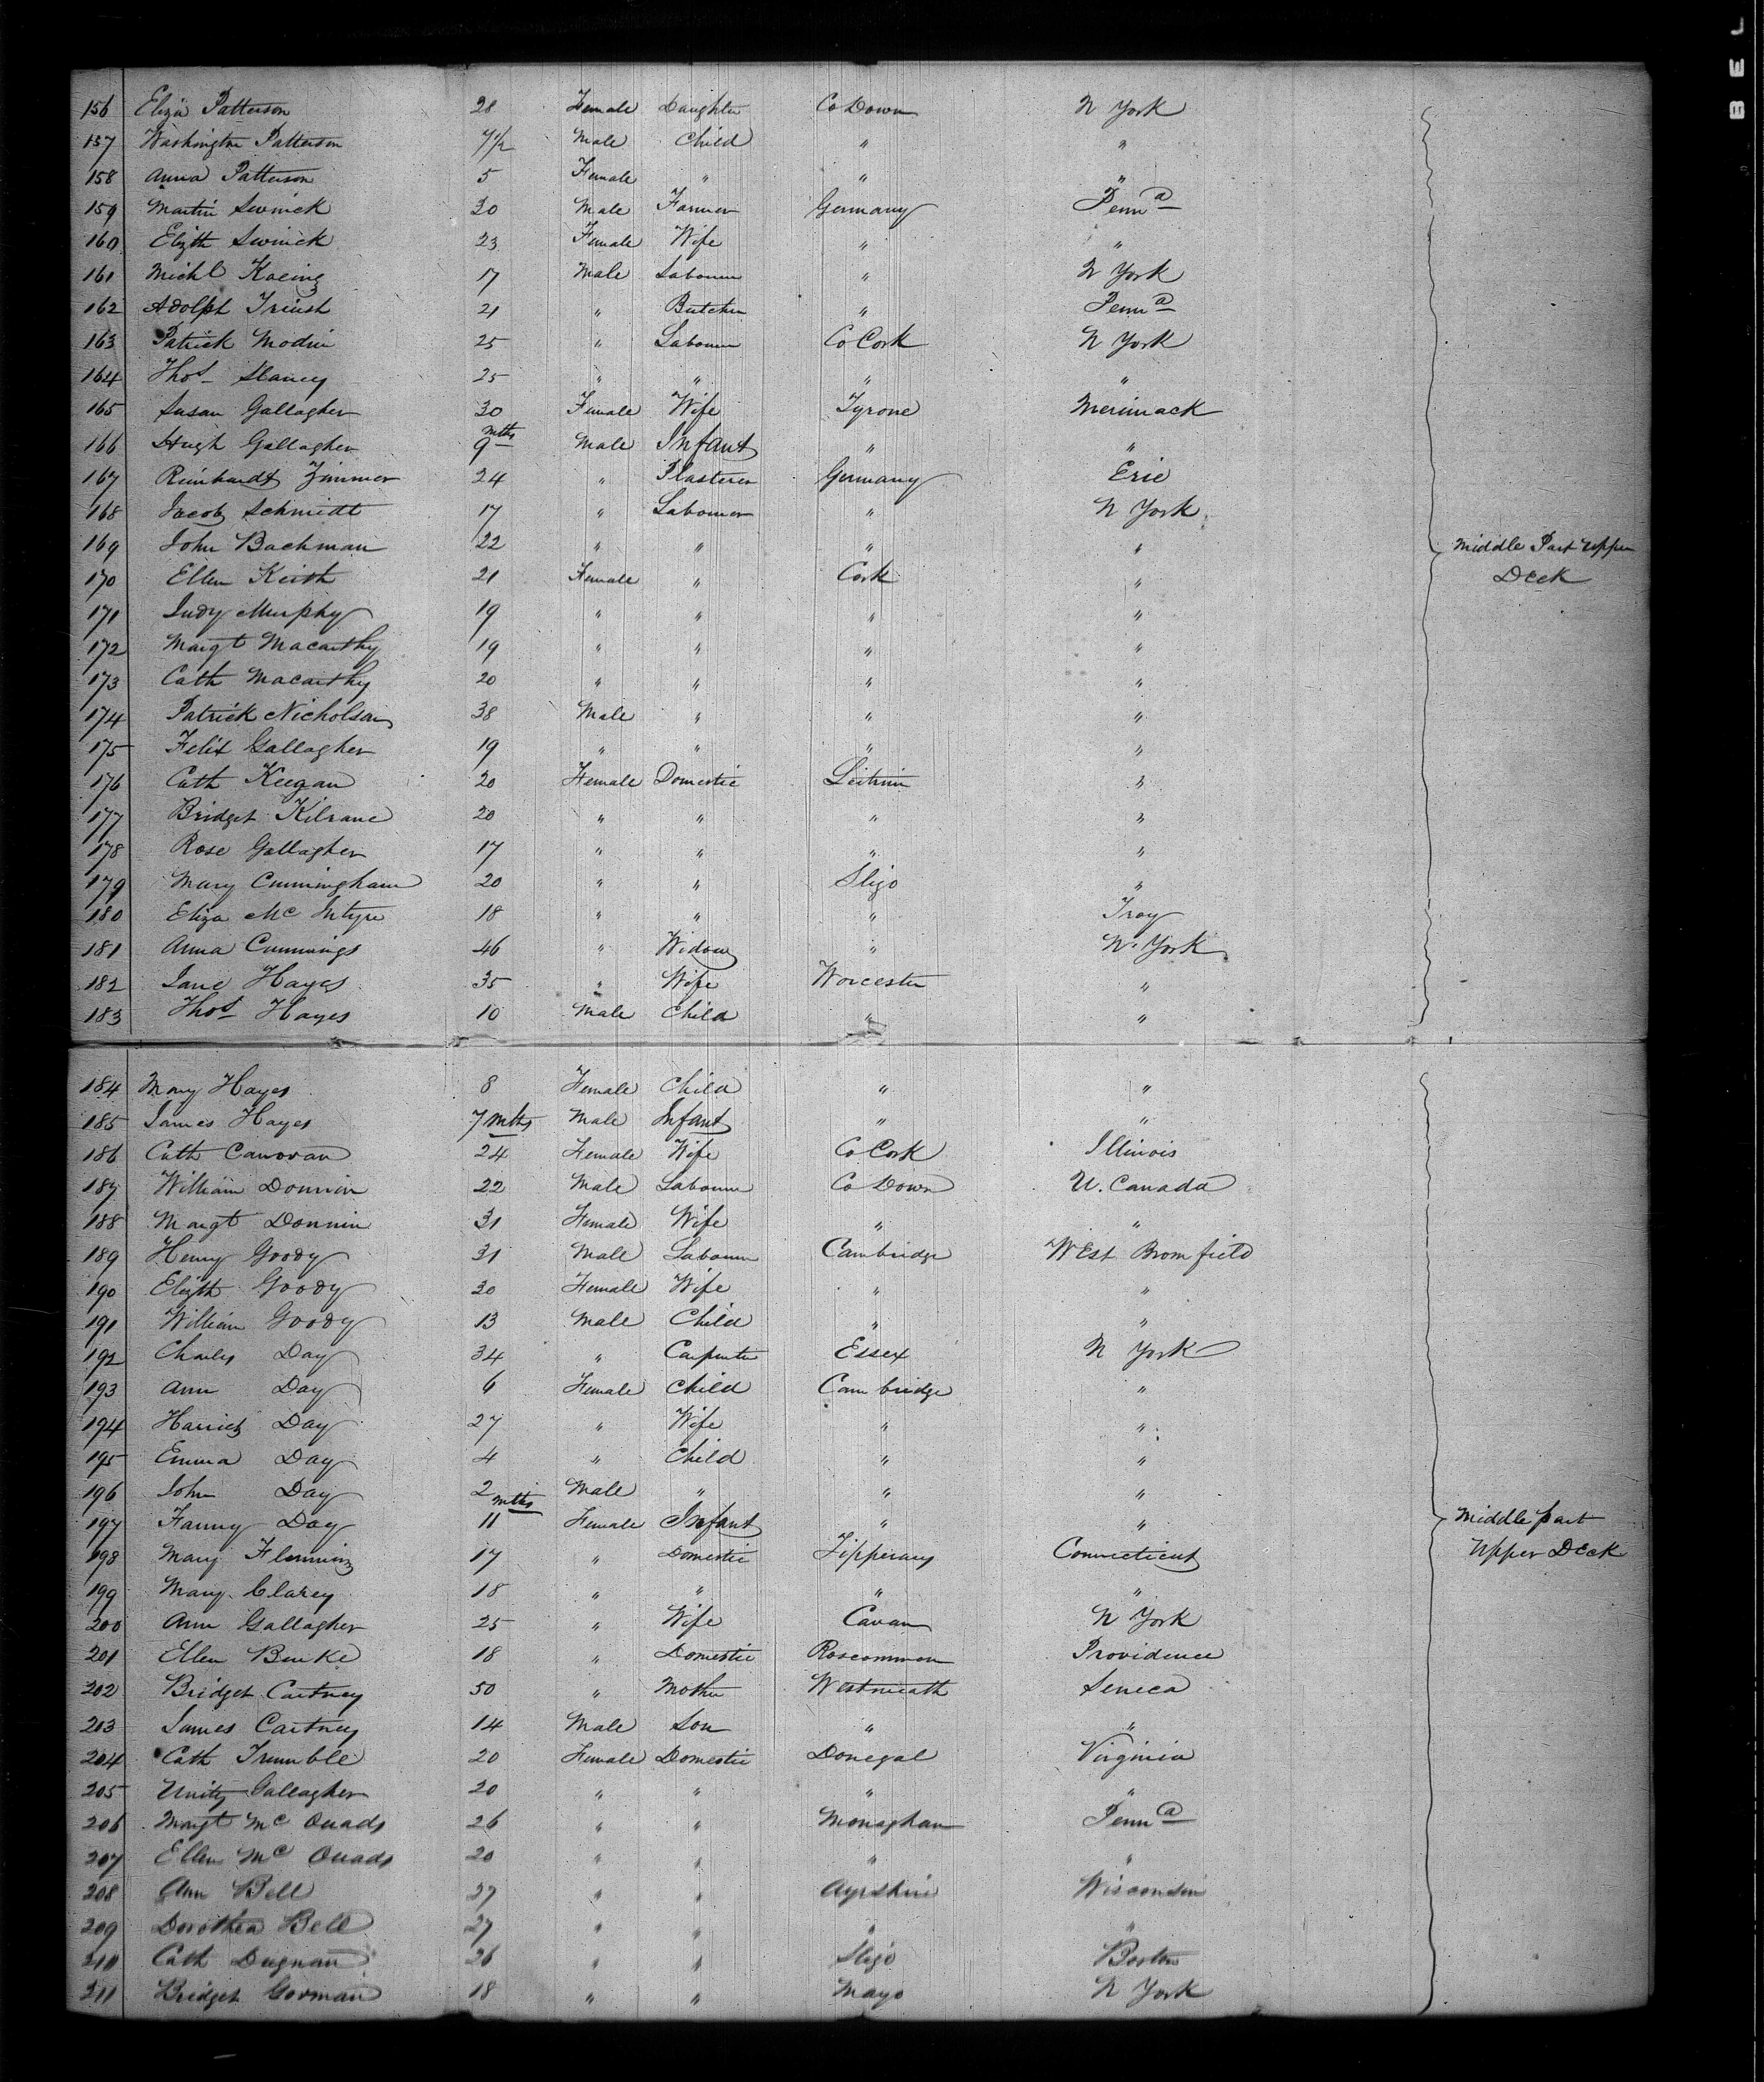 BEL
156 Eliza Patterson 28 Female Daughter Co Down N York
157 Washington Patterson 7 1/2 Male Child " "
158 Anna Patterson 5 Female " " "
159 Martin Swinck 30 Male Farmer Germany Penna
160 Elizth Swinck 23 Female Wife " "
161 Michl Kacing 17 Male Labourer " N York
162 Adolph Triush 21 " Butcher " Penna
163 Patrick Modrin 25 " Labourer Co Cork N York
164 Thos Slancy 25 " " " "
165 Susan Gallagher 30 Female Wife Tyrone Merimack
166 Hugh Gallagher 9 mths Male Infant " "
167 Reinhardt Zimmer 24 " Plasterer Germany Erie
168 Jacob Schmidt 17 " Labourer " N York
169 John Bachman 22 " " " " Middle Part Upper
170 Ellen Keith 21 Female " Cork " Deck
171 Judy Murphy 19 " " " "
172 Margt Macarthy 19 " " " "
173 Cath Macarthy 20 " " " "
174 Patrick Nicholson 38 Male " " "
175 Felix Gallagher 19 " " " "
176 Cath Keegan 20 Female Domestic Leitrim "
177 Bridget Kilrane 20 " " " "
178 Rose Gallagher 17 " " " "
179 Mary Cunningham 20 " " Sligo "
180 Eliza Mc Intyre 18 " " " Troy
181 Anna Cummings 46 " Widow " N. York
182 Jane Hayes 35 " Wife Worcester "
183 Thos Hayes 10 Male Child " "
184 Mary Hayes 8 Female Child " "
185 James Hayes 7 mths Male Infant " "
186 Cath Canovan 24 Female Wife Co Cork Illinois
187 William Donnin 22 Male Labourer Co Down U. Canada
188 Margt Donnin 31 Female Wife " "
189 Henry Goody 31 Male Labourer Cambridge West Bromfield
190 Elizth Goody 30 Female Wife " "
191 William Goody 13 Male Child " "
192 Charles Day 34 " Carpenter Essex N York
193 Ann Day 6 Female Child Cambridge "
194 Harriet Day 27 " Wife " "
195 Emma Day 4 " Child " "
196 John Day 2 Male " " "
197 Fanny Day 11 mths Female Infant " " Middle part
198 Mary Flemming 17 " Domestic Tipperary Connecticut Upper Deck
199 Mary Clarey 18 " " " "
200 Ann Gallagher 25 " Wife Cavan N York
201 Ellen Burke 18 " Domestic Roscommon Providence
202 Bridget Cartney 50 " Mother Westmeath Seneca
203 James Cartney 14 Male Son " "
204 Cath Trumble 20 Female Domestic Donegal Virginia
205 Unity Gallagher 20 " " " "
206 Margt Mc Quads 26 " " Monaghan Penna
207 Ellen Mc Quads 20 " " " "
208 Ann Bell 27 " " Ayrshire Wisconsin
209 Dorothea Bell 27 " " " "
210 Cath Dugnan 26 " " Sligo Boston
211 Bridget Gorman 18 " " Mayo N York